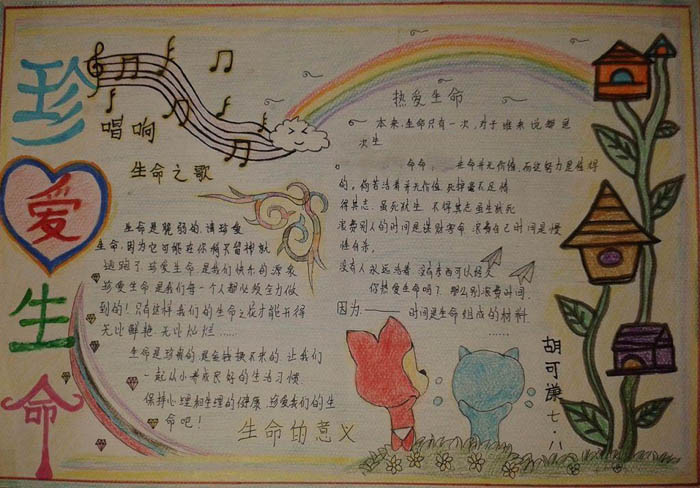 珍爱生命
唱响
生命之歌
生命是脆弱的,请珍爱
生命,因为它可能在你稍不留神就
逃跑了.珍爱生命是我们快乐的源泉
珍爱生命是我们每一个人都必须全力做
到的!只有这样我们的生命之花才能开得
无比鲜艳.无比灿烂……
生命是珍贵的是金钱换不来的.让我们
一起从小养成良好的生活习惯
保持心理和生理的健康.珍爱我们的生
命吧!
生命的意义
热爱生命
本来.生命只有一次,对于谁来说都是
次生
命命. 生命并无价值,而这努力是值得
的。倘若活着并无价值.死
得其志,虽死犹生.不得其志虽生犹死
浪费别人的时间是谋财害命.浪费自己时间是慢
性自杀.
没有人永远活着.没有东西可以经久
你热爱生命吗?那么别浪费时间.
因为——时间是生命组成的材料
胡可谦七.八